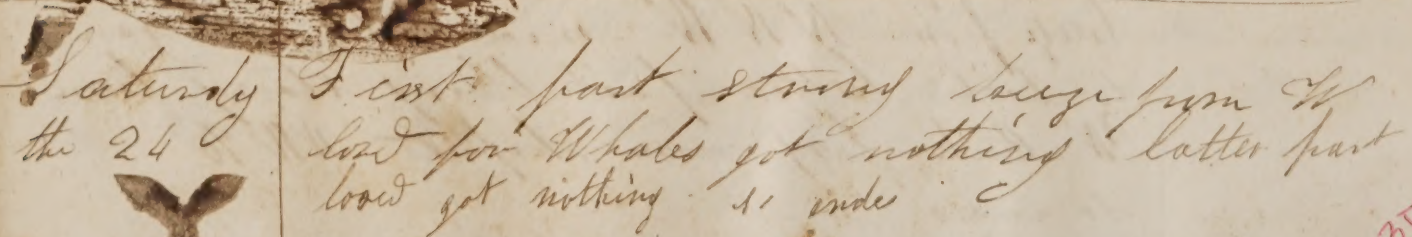 Saturdy First part strong breeze from W
the 24 lord for Whales got nothing latter part
lored got nothing so endes